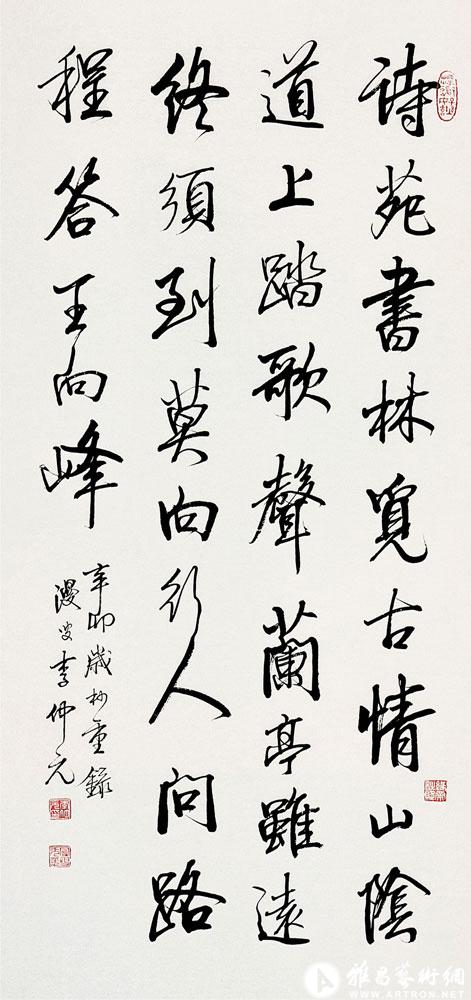 詩苑書林覓古情山陰
道上踏歌聲蘭亭雖遠
終須到莫向行人問路
程答王向峰
辛卯歲杪重錄
漫叟李仲元
雅昌藝術網
WWW.ARTRON.NET